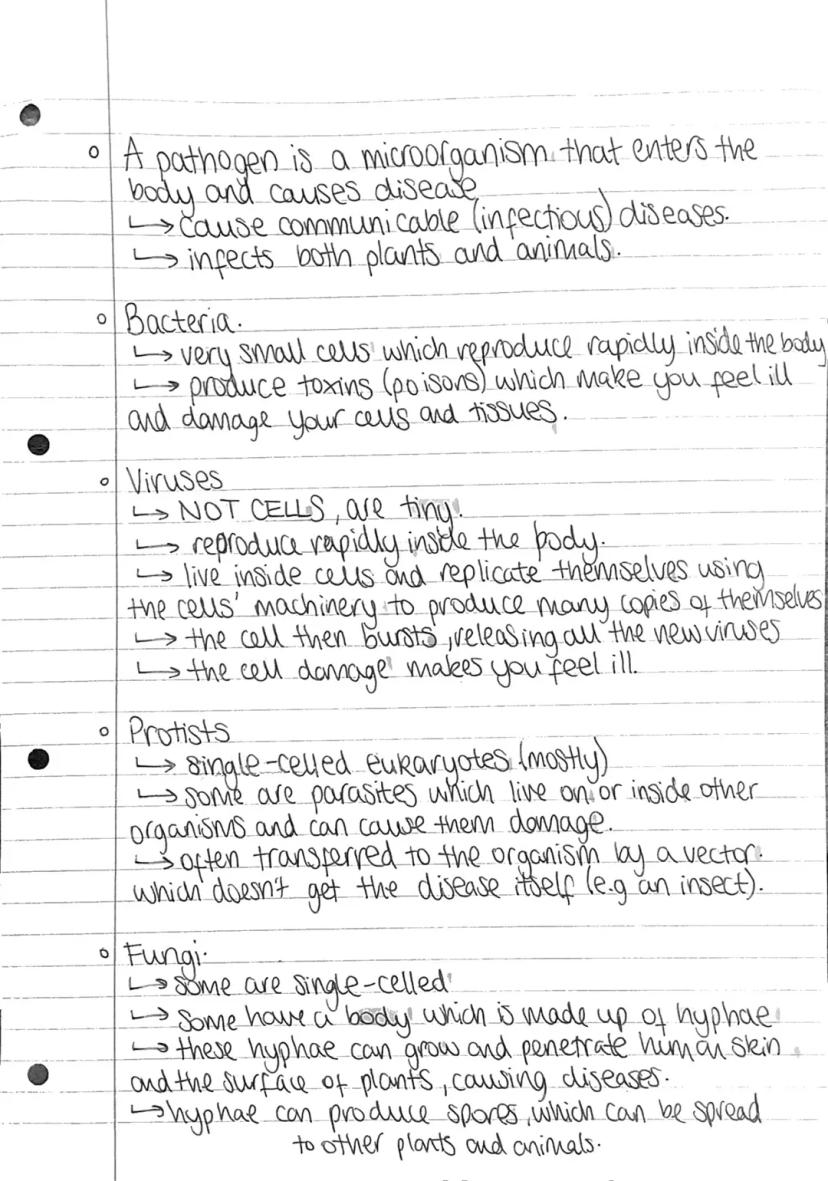 ○ A pathogen is a microorganism that enters the
body and causes disease
↳ cause communicable (infectious) diseases.
↳ infects both plants and animals.
○ Bacteria.
↳ very small cells which reproduce rapidly inside the body
↳ produce toxins (poisons) which make you feel ill
and damage your cells and tissues.
○ Viruses
↳ NOT CELLS, are tiny.
↳ reproduce rapidly inside the body.
↳ live inside cells and replicate themselves using
the cells' machinery to produce many copies of themselves
↳ the cell then bursts, releasing all the new viruses
↳ the cell damage makes you feel ill.
○ Protists
↳ single-celled eukaryotes (mostly)
↳ some are parasites which live on or inside other
organisms and can cause them damage.
↳ often transferred to the organism by a vector.
which doesn't get the disease itself (e.g an insect).
○ Fungi.
↳ some are single-celled
↳ some have a body which is made up of hyphae
↳ these hyphae can grow and penetrate human skin
and the surface of plants, causing diseases.
↳ hyphae can produce spores, which can be spread
to other plants and animals.